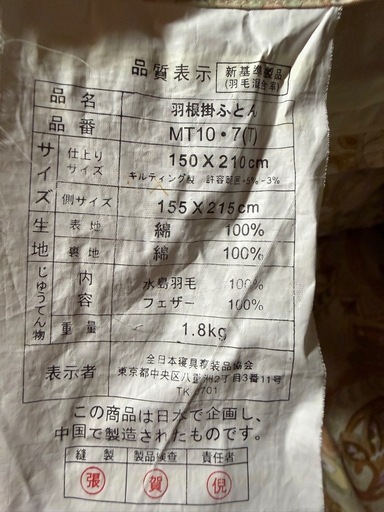 品質表示 新基準製品
(羽毛混合系)
品名 羽根掛ふとん
品番 MT10・7(T)
サイズ 仕上りサイズ 150X210cm
キルティング製 許容範囲+5%-3%
側サイズ 155X215cm
生地 表地 綿 100%
裏地 綿 100%
じゅうてん物 内容 水鳥羽毛 100%
フェザー 100%
重量 1.8kg
表示者 全日本寝具寝装品協会
東京都中央区八重洲2丁目3番11号
TK 1701
この商品は日本で企画し、
中国で製造されたものです。
縫製 製品検査 責任者
張 賀 倪